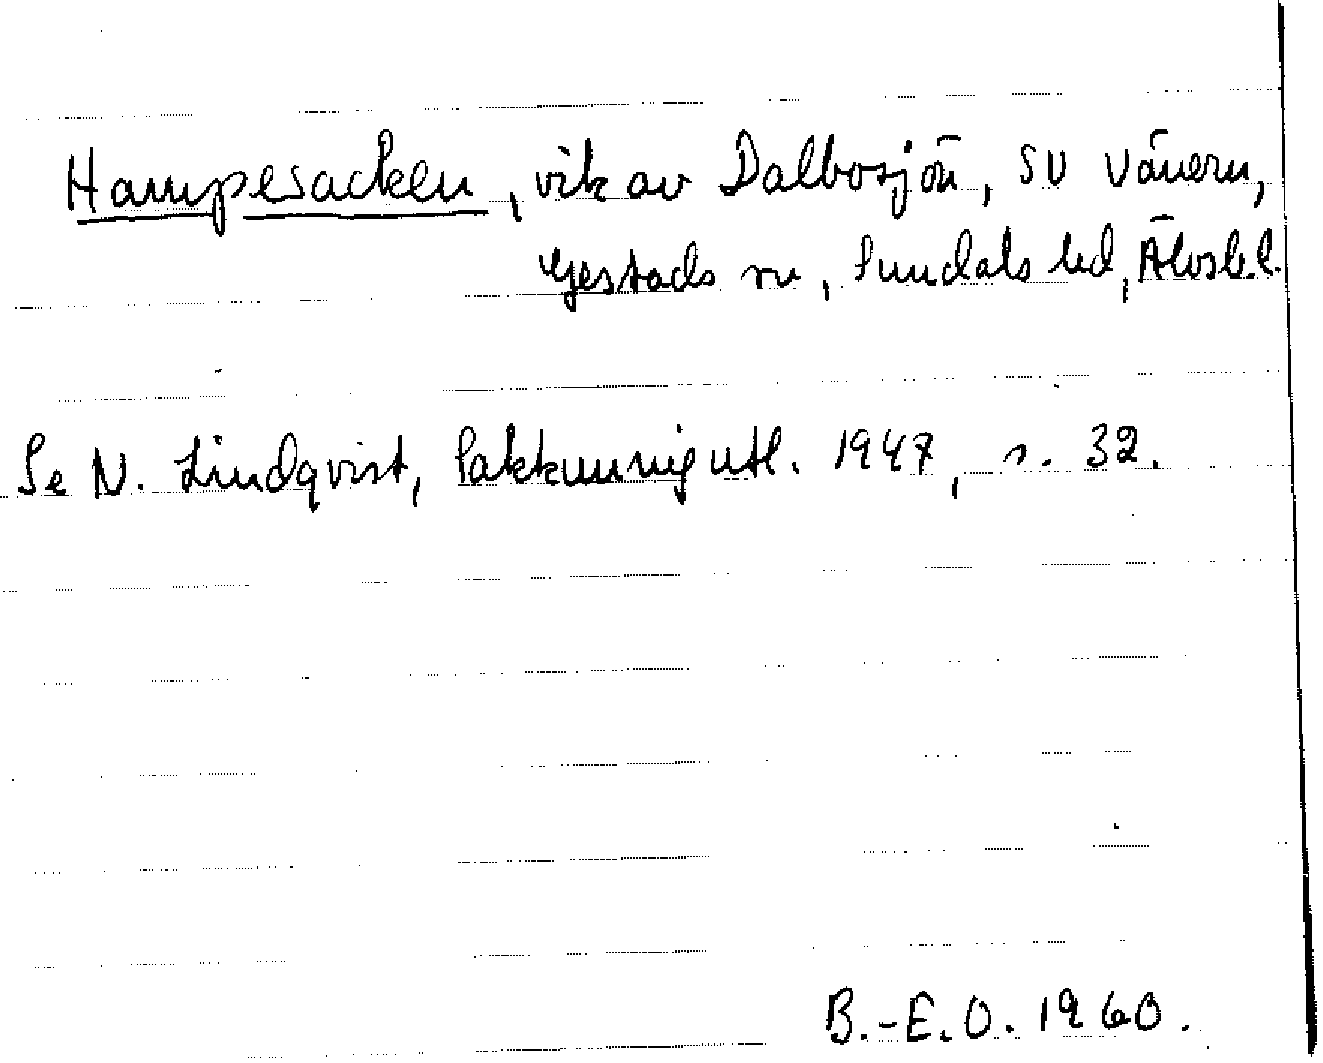 Hampesäcken, vik av Dalbosjön, SV Vänern,
Gestads sn, Sundals hd, Älvsb. l.
Se N. Lindqvist, Sakkunnigutl. 1947, s. 32.
B.-E.O. 1960.